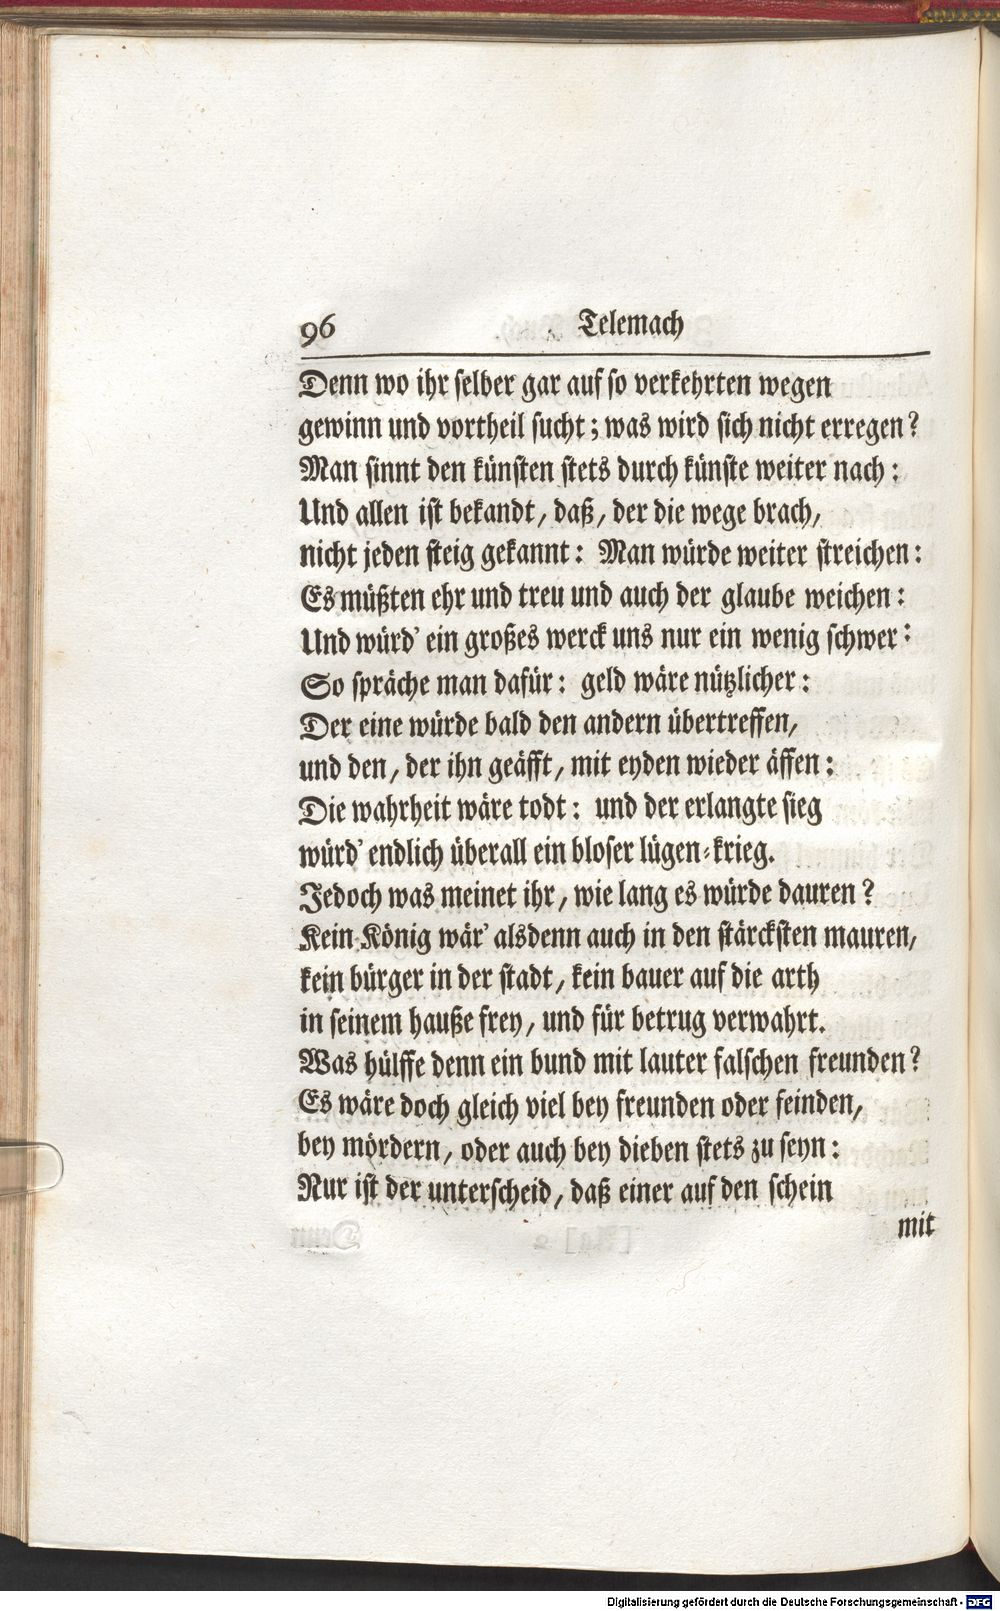 96 Telemach
Denn wo ihr selber gar auf so verkehrten wegen
gewinn und vortheil sucht; was wird sich nicht erregen?
Man sinnt den künsten stets durch künste weiter nach:
Und allen ist bekandt, daß, der die wege brach,
nicht jeden steig gekannt: Man würde weiter streichen:
Es müßten ehr und treu und auch der glaube weichen:
Und würd' ein großes werck uns nur ein wenig schwer:
So spräche man dafür: geld wäre nützlicher:
Der eine würde bald den andern übertreffen,
und den, der ihn geäfft, mit eyden wieder äffen:
Die wahrheit wäre todt: und der erlangte sieg
würd' endlich überall ein bloser lügen-krieg.
Jedoch was meinet ihr, wie lang es würde dauren?
Kein König wär' alsdenn auch in den stärcksten mauren,
kein bürger in der stadt, kein bauer auf die arth
in seinem hauße frey, und für betrug verwahrt.
Was hülffe denn ein bund mit lauter falschen freunden?
Es wäre doch gleich viel bey freunden oder feinden,
bey mördern, oder auch bey dieben stets zu seyn:
Nur ist der unterscheid, daß einer auf den schein
mit
Digitalisierung gefördert durch die Deutsche Forschungsgemeinschaft - DFG